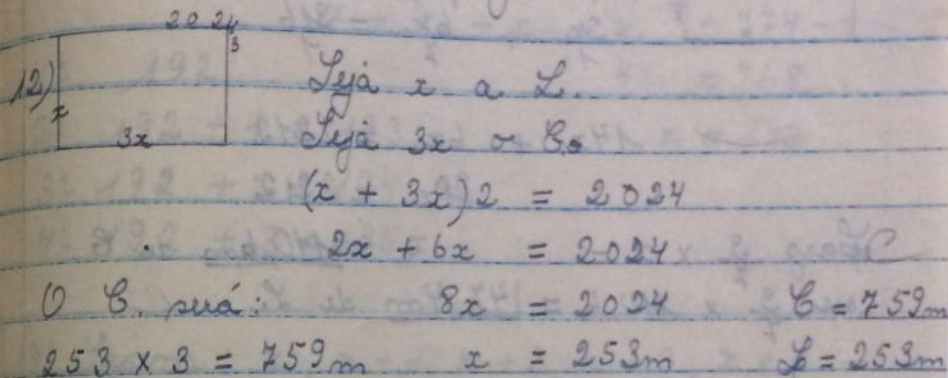 2024
12) x
3x
Sejá x a L.
Sejá 3x o C.
(x + 3x)2 = 2024
2x + 6x = 2024
O C. será: 8x = 2024 C = 759m
253 x 3 = 759m x = 253m L = 253m